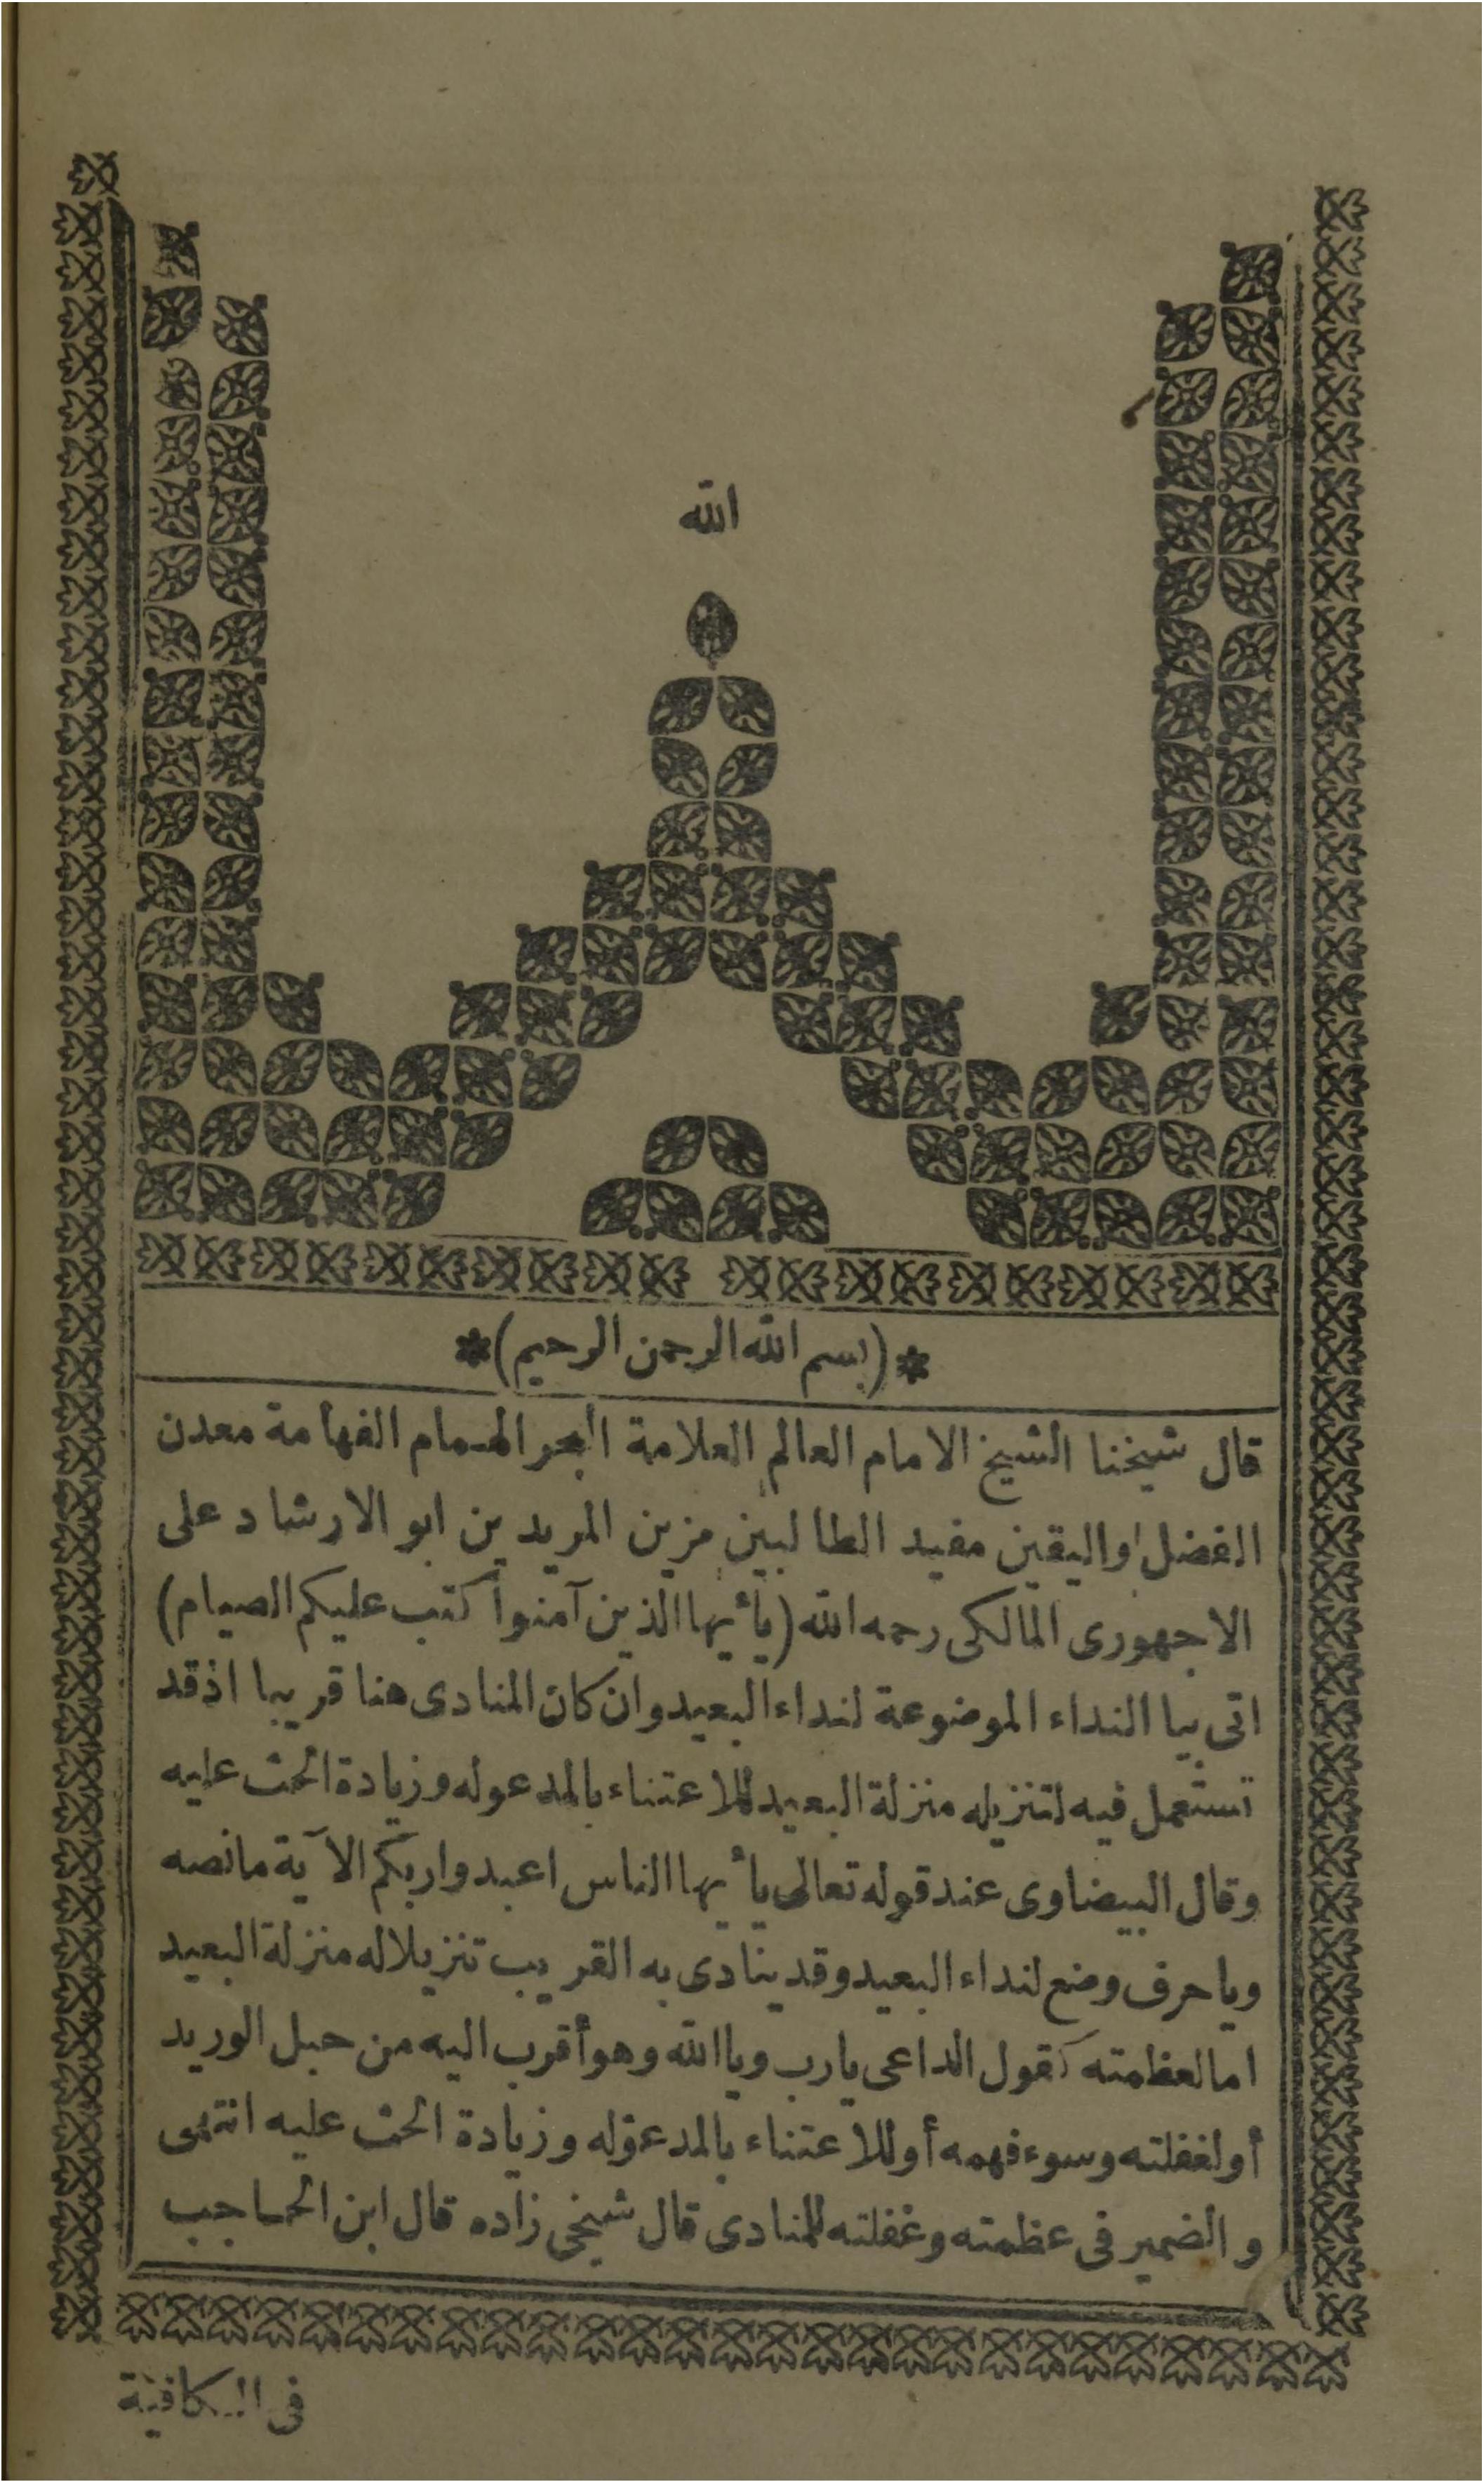 الله
*(بسم الله الرحمن الرحيم)*
قال شيخنا الشيخ الامام العالم العلامة البحر الهمام الفهامة معدن
الفضل واليقين مفيد الطالبين مزين المريدين ابو الارشاد على
الاجهورى المالكى رحمه الله (يا أيها الذين آمنوا كتب عليكم الصيام)
اتى بيا النداء الموضوعة لنداء البعيد وان كان المنادى هنا قريبا اذ قد
تستعمل فيه لتنزيله منزلة البعيد للاعتناء بالمدعو له وزيادة الحث عليه
وقال البيضاوى عند قوله تعالى يا أيها الناس اعبدوا ربكم الآية ما نصه
ويا حرف وضع لنداء البعيد وقد ينادى به القريب تنزيلا له منزلة البعيد
اما لعظمته كقول الداعى يارب ويا الله وهو أقرب اليه من حبل الوريد
أو لغفلته وسوء فهمه أو للاعتناء بالمدعوّ له وزيادة الحث عليه انتهى
والضمير فى عظمته وغفلته للمنادى قال شيخى زاده قال ابن الحاجب
فى الكافية